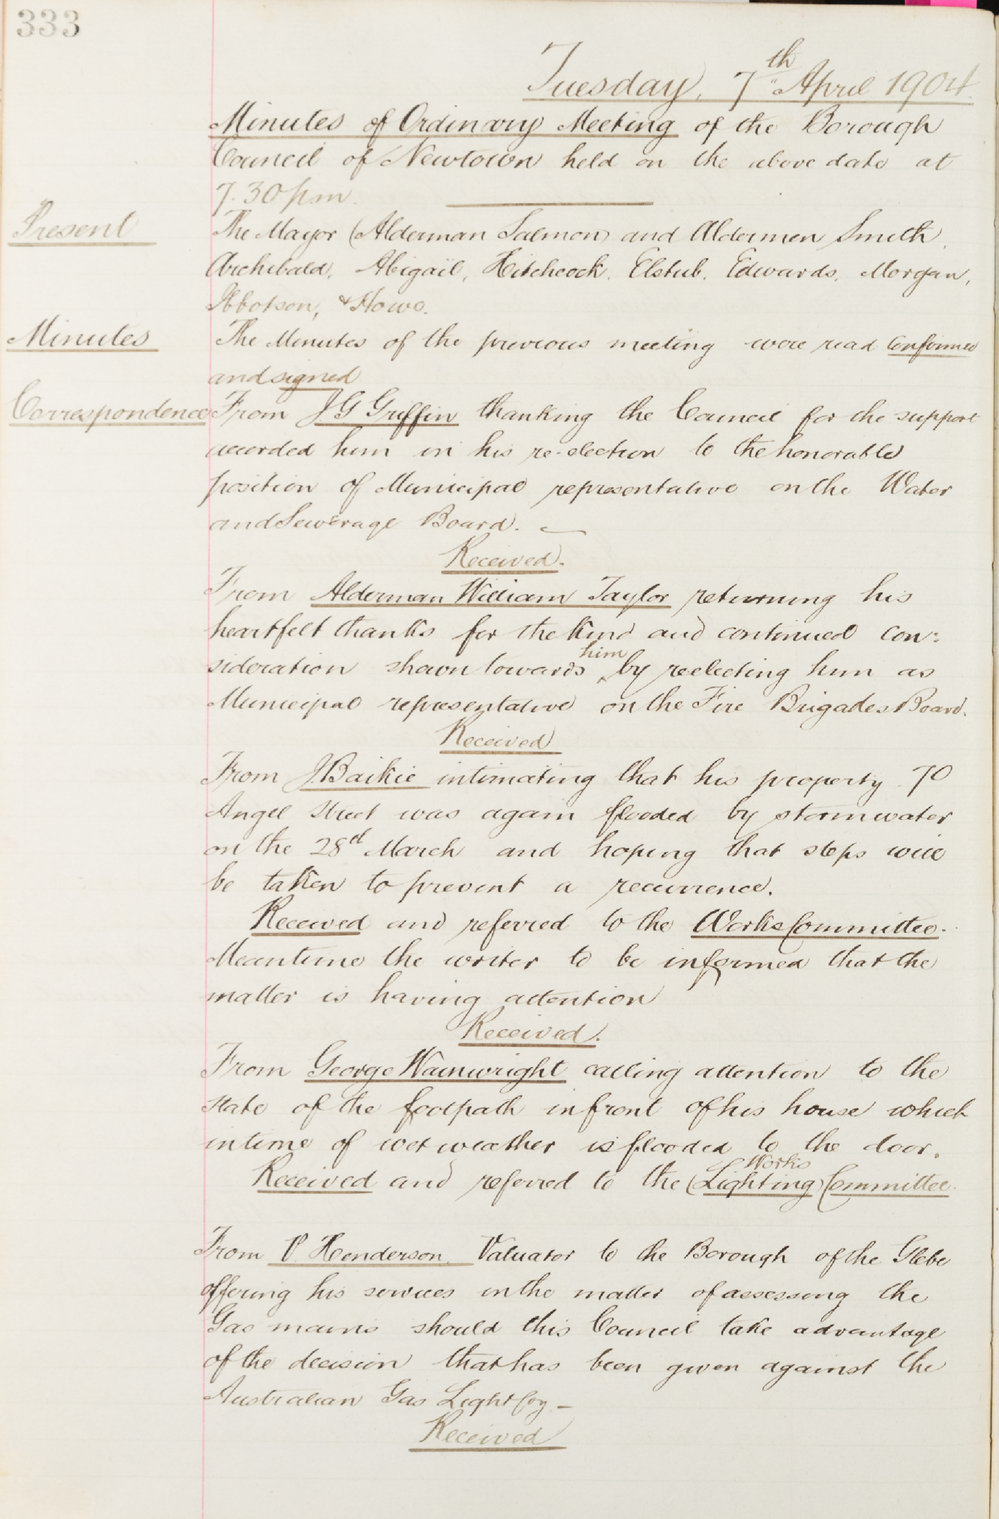 333
Tuesday, 7th April 1904
Minutes of Ordinary Meeting of the Borough
Council of Newtown held on the above date at
7.30 pm.
Present
The Mayor (Alderman Salmon) and Aldermen Smith,
Archibald, Abigail, Hitchcock, Elstub, Edwards, Morgan,
Ibbotson, & Howe.
Minutes
The Minutes of the previous meeting were read confirmed
and signed
Correspondence
From J G Griffin thanking the Council for the support
accorded him in his re-election to the honorable
position of Municipal representative on the Water
and Sewerage Board.
Received.
From Alderman William Taylor returning his
heartfelt thanks for the kind and continued con:
sideration shewn towards him by reelecting him as
Municipal representative on the Fire Brigades Board.
Received
From J Baikie intimating that his property 70
Angel Street was again flooded by stormwater
on the 28th March and hoping that steps will
be taken to prevent a recurrence.
Received and referred to the Works Committee.
Meantime the writer to be informed that the
matter is having attention
Received.
From George Wainwright calling attention to the
state of the footpath in front of his house which
in time of wet weather is flooded to the door.
Works
Received and referred to the (Lighting) Committee.
From P. Henderson, Valuator to the Borough of the Glebe
offering his services in the matter of assessing the
Gas mains should this Council take advantage
of the decision that has been given against the
Australian Gas Light Coy –
Received